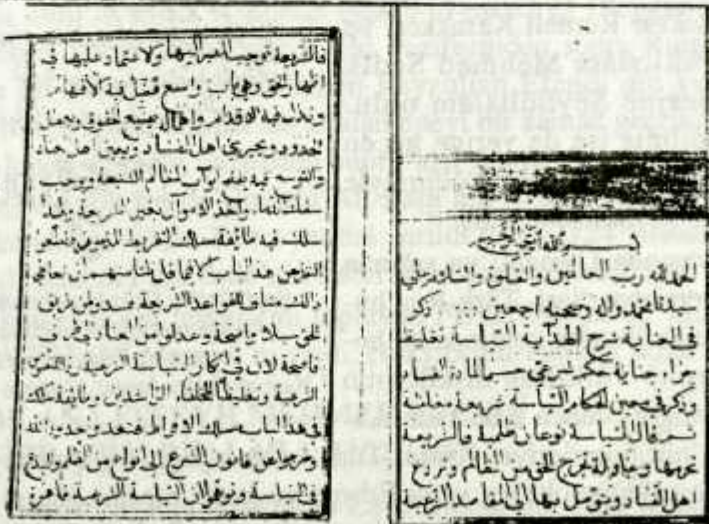 بسم الله الرحمن الرحيم
الحمد لله رب العالمين والصلوة والسلام على
سيدنا محمد واله وصحبه اجمعين ... ذكر
في العناية شرح الهداية السياسة تغليظ
جزاء جناية حكم شرعي حسم المادة الفساد
وذكر في معين الحكام السياسة شريعة مغلظة
ثم قال السياسة نوعان ظلمة فالشريعة
تحرمها وعادلة تخرج الحق من الظالم وتردع
اهل الفساد ويتوصل بها الى المقاصد الشرعية
فالشريعة توجب المصير اليها والاعتماد عليها في
اظهار الحق وهي باب واسع تضل فيه الافهام
وتزل فيه الاقدام واهماله يضيع الحقوق ويعطل
الحدود ويجري اهل الفساد ويعين اهل
والتوسع فيه يفتح ابواب المظالم الشنيعة ويوجب
سفك الدماء واخذ الاموال بغير الشريعة ولهذا
سلك فيه طائفة مسلك التفريط المذموم فقطعوا
النظر عن هذا الباب الا فيما قل ظنا منهم ان تعاطي
ذلك مناف للقواعد الشرعية فسدوا من طريق
الحق سبلا واضحة وعدلوا الى طريق من العناد
فاضحة لان في انكار السياسة الشرعية
الشرعية وتغليطا للخلفاء الراشدين وطائفة سلك
في هذا الباب مسلك الافراط فتعدوا حدود الله
وخرجوا عن قانون الشرع الى انواع من الظلم والبدع
في السياسة وتوهموا ان السياسة الشرعية قاصرة